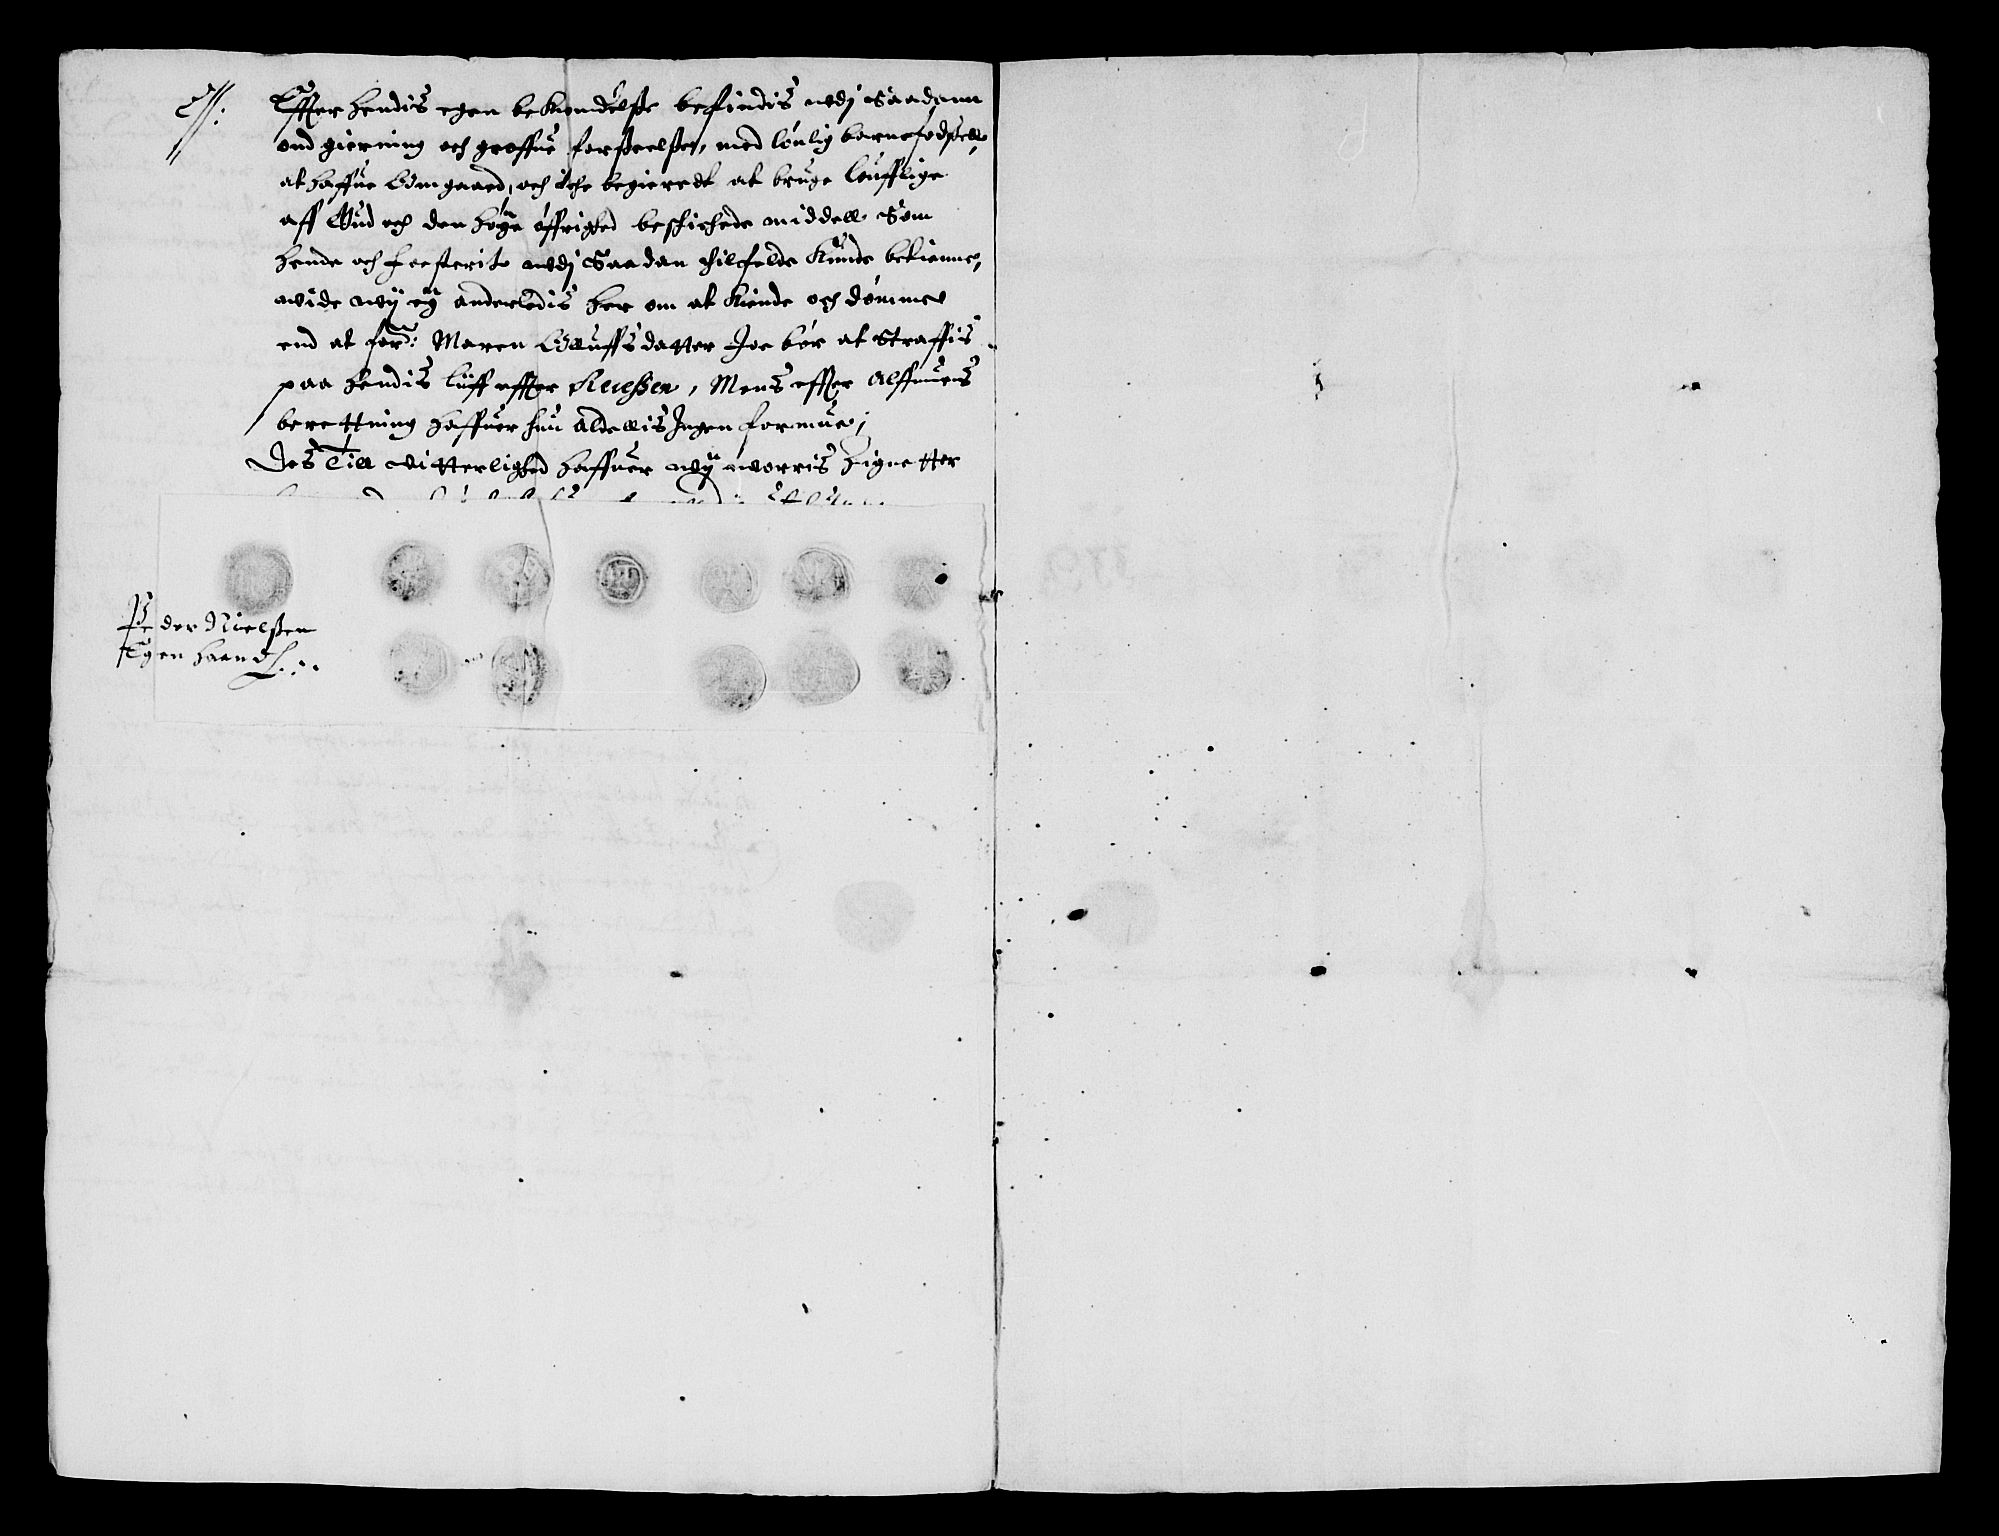 Effter hendis egen bekiendelße befindis udj Saadann
ond gierning och groffue forseelße, med lønlig barnefødßell
at haffue omgaaed, och iche begieredt at bruge loufflige
aff Gud och den høye øffrighed beschichede middell som
hende och udj Saadan tilfelde kunde bekomme,
wide wij ey anderledis her om at kiende och dømme
end at forn: Maren Olluffsdatter Joe bør at Straffis
paa hendis liiff effter Receßen, Mens effter
berettning haffuer hun aldellis Jngen formue,
Des Till vitterlighed haffuer wij worris Zignetter
Peder Nielßen
Egen haand